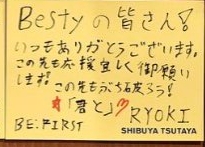 Bestyの皆さん!
いつもありがとうございます。
この先も応援宜しく御願い
します。
この先もぶち上ろう!
★「君と」♡ RYOKI
BE:FIRST
SHIBUYA TSUTAYA